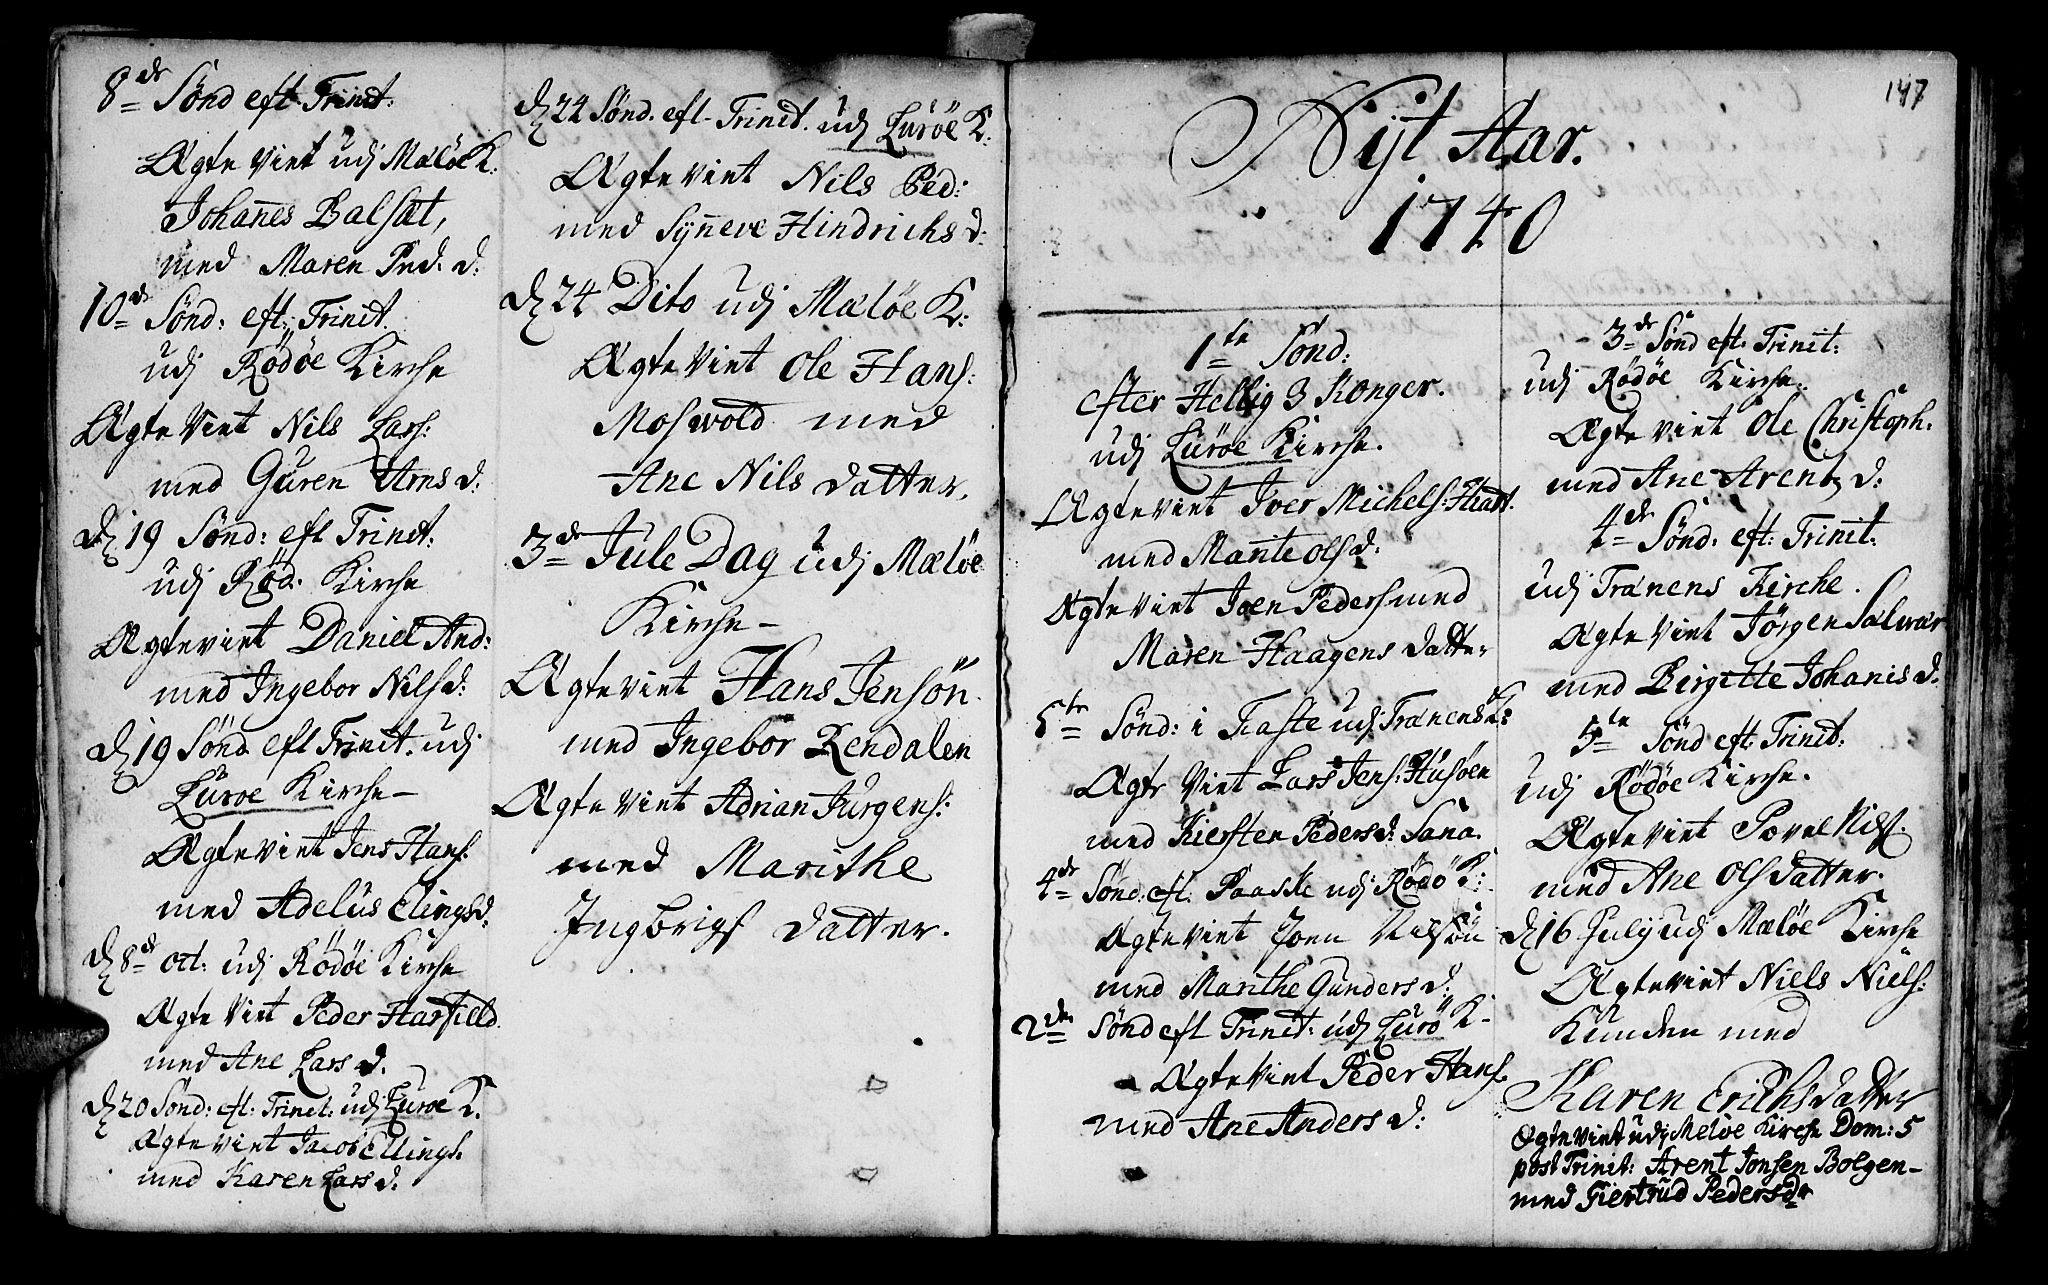 8de Sønd eft Trinit:
Ægte Viet udj Mæløe K:
Johañes Balsæt,
med Maren Ped. d:
10de Sønd: eft. Trinit.
udj Rödöe Kirche
Ægte Viet Nils Lars:
med Guren Arns d:
D. 19 Sønd: eft Trinit:
udj Röd. Kirche
Ægte viet Daniel And:
med Ingebor Nils d:
D. 19 Sønd eft Trinit. udj
Luröe Kirche –
Ægte viet Jens Hans:
med Adelus Elings d:
D. 8de oct: udj Rödöe Kirche
Ægte Viet Peder Harfield
med Ane Lars d.
D. 20 Sønd: eft: Trinit: udj Luröe K.
Ægte viet Jacob Ellings.
med Karen Lars d:
D. 24 Sønd. eft. Trinit. udj Luröe K:
Ægte viet Nils Ped:
med Sÿneve Hindrichs d:
D. 24 Dito udj Mæløe K:
Ægte Viet Ole Hans:
Moswold med
Ane Nils datter.
3de Jule Dag udj Mæløe
Kirche –
Ægte viet Hans Jensön
med Ingebor Rendalen
Ægte viet Adrian Jurgens:
med Marithe
Ingbrigs datter.
147
Nÿt Aar.
1740
1te Sønd:
efter Hellig 3 Konger.
udj Luröe Kirche.
Ægte viet Iver Michels:
med Mañte Ols d:
Ægte viet Joen Peders med
Maren Haagens datter
5te Sønd: i Faste udj Trænens K:
Ægte Viet Lars Jens: Husöen
med Kiersten Peders d: Sana.
4de Sønd: eft. Paaske udj Rödö K:
Ægte viet Joen Nilsön
med Marithe Gunders d:
2den Sønd eft Trinit: udj Lurö K –
Ægte viet Peder Hans.
med Ane Anders d:
3de Sønd eft: Trinit:
udj Rödöe Kirche.
Ægte viet Ole Christoph.
med Ane Arentz d:
4de Sønd: eft: Trinit:
udj Trænens Kirche.
Ægte Viet Jörgen Selvær
med Birgitte Johanis d.
5te Sønd eft. Trinit:
udj Rödöe Kirche.
Ægte viet Povel Nils.
med Ane Ols datter.
D. 16 Julÿ udj Mæløe Kirche
Ægte viet Niels Niels:
Kunden med
Karen Erichsdatter
Ægte viet udj Meløe Kirche Dom: 5
post Trinit: Arent Jonsen Bolgen –
med Giertrud Pedersdr